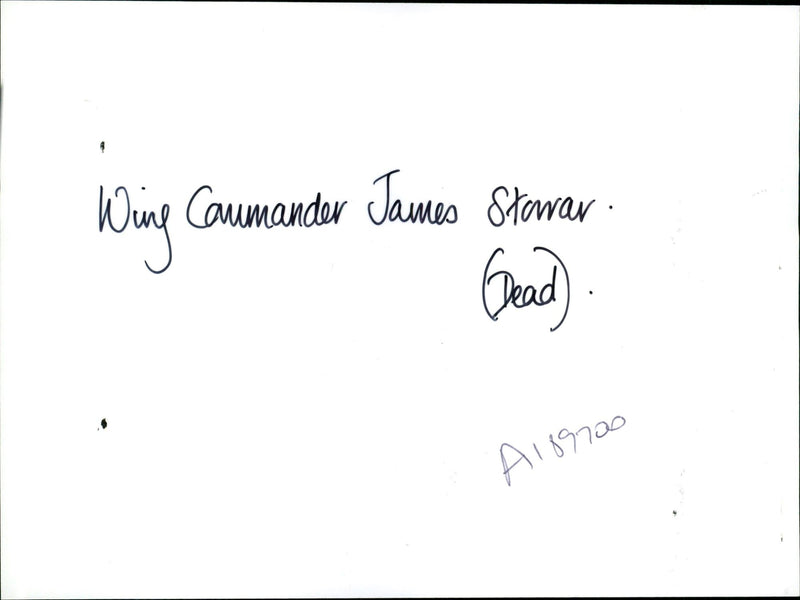 Wing Commander James Storrar.
(Dead).
A189700